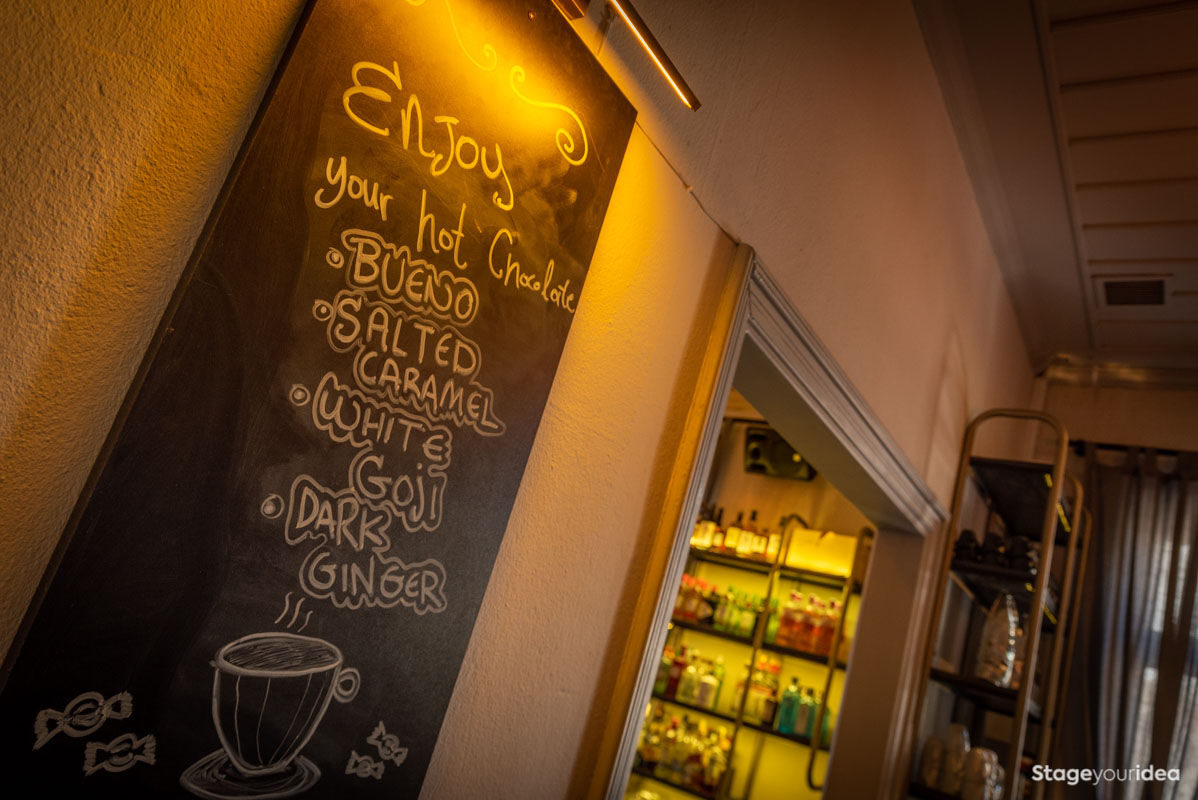 Enjoy
your hot Chocolate
BUENO
SALTED
CARAMEL
WHITE
GOJI
DARK
GINGER
Stageyouridea